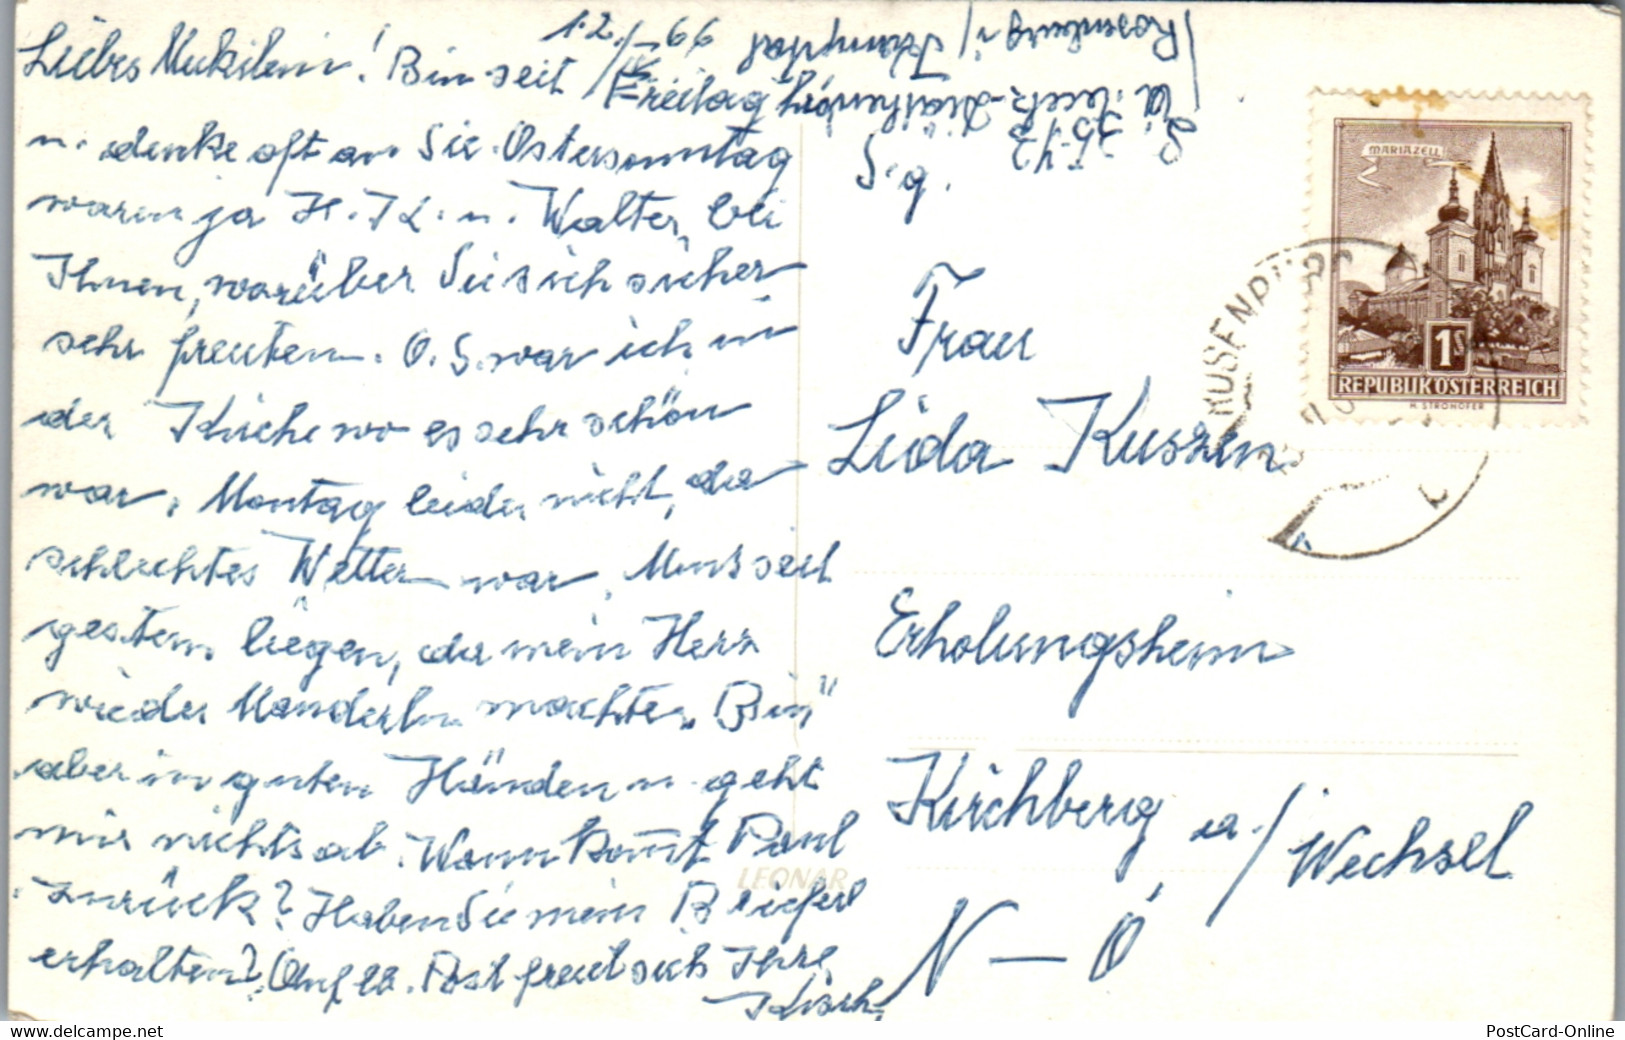 12./IV 66
Liebes Mukilein! Bin seit Freitag hier
u. denke oft an Sie. Ostersonntag
waren ja H. K. u. Walter bei
Ihnen, worüber Sie sich sicher
sehr freuten. O.S. war ich in
der Kirche wo es sehr schön
war. Montag leider nicht, da
schlechtes Wetter war. Muss seit
gestern liegen, da mein Herz
wieder Manderln machte. Bin
aber in guten Händen u. geht
mir nichts ab. Wann kommt Paul
zurück? Haben Sie mein Brieferl
erhalten? Auf lb. Post freut sich Ihre
Rosenburg i/ Kamptal
3573
S.g.
Frau
Lida Kuszen
Erholungsheim
Kirchberg a./Wechsel
N–Ö
MARIAZELL
1S
REPUBLIK ÖSTERREICH
H. STROHOFER
ROSENBURG
LEONAR
www.delcampe.net
kathi33
PostCard-Online